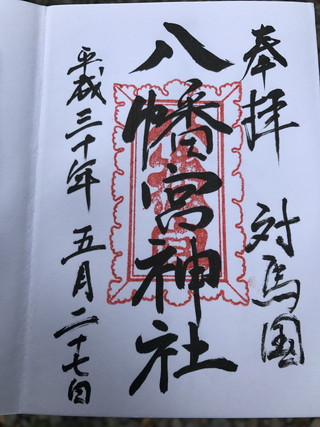 奉拝
対馬国
八幡宮神社
平成三十年五月二十七日